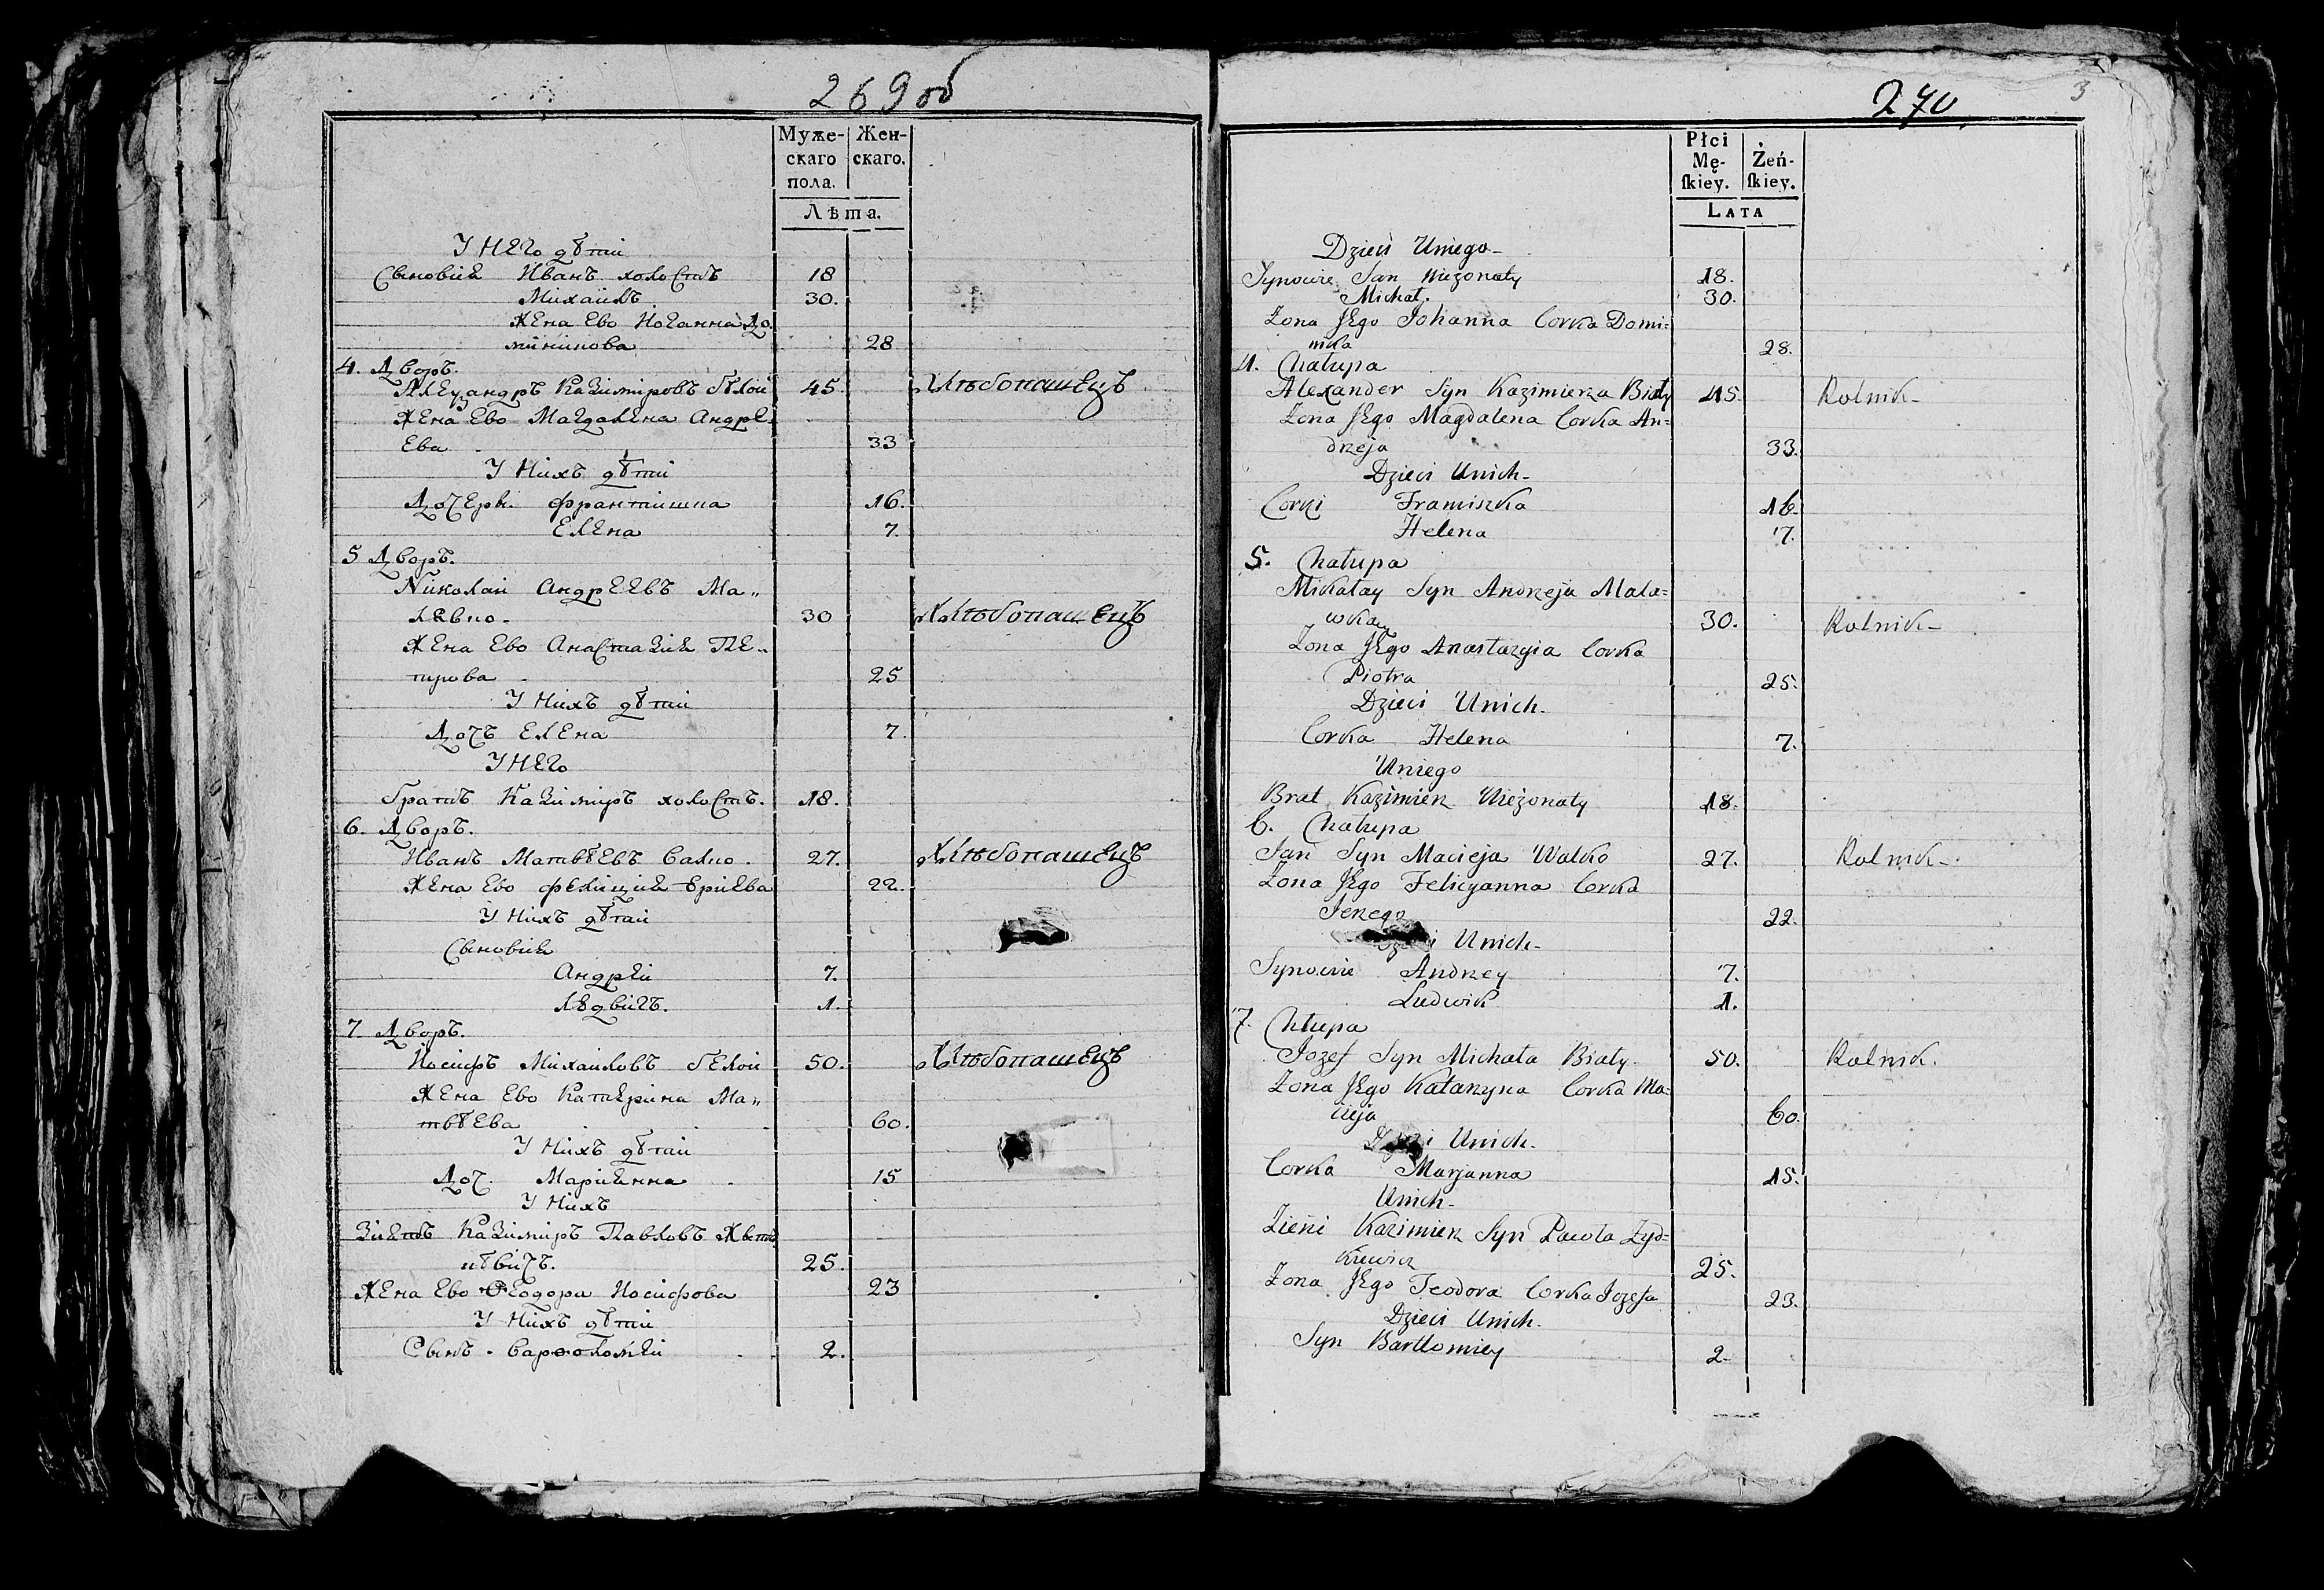 269об
Муже- Жен-
скаго скаго.
пола.
Лѣта.
У него дѣти
Сыновья Иванъ холостъ 18
Михаилъ 30.
Жена ево Иоганна До
миникова 28
4. Дворъ.
Александръ Казимировъ Бѣлой 45. Хлѣбопашецъ
Жена ево Магдалена Андре
ева 33
У нихъ дѣти
Дочери Франтишка 16.
Елена 7.
5 Дворъ.
Николаи Андреевъ Ма„
левко 30 Хлѣбопашецъ
Жена ево Анастазия Пе„
трова 25
У нихъ дѣти
Дочъ Елена 7.
У него
Братъ Казимиръ холостъ. 18.
6. Дворъ.
Иванъ Матвѣевъ Валко 27. Хлѣбопашецъ
Жена ево Фелиция Ериева 22.
У нихъ дѣти
Сыновья
Андрей 7.
Людвигъ. 1.
7 Дворъ.
Иосифъ Михаиловъ Белой 50. Хлѣбопашецъ
Жена ево Катерина Ма„
твѣева 60.
У нихъ дѣти
Доч. Марианна 15
У нихъ
Зиять Казимиръ Павловъ
25.
Жена ево Феодора Иосифова 23
У нихъ дѣти
Сынъ Варфоломей 2.
270
3
Płci
Mę- Żeń-
ſkiey. ſkiey.
LATA
Dzieci Uniego
Synowie Jan Nieżonaty 18.
Michał. 30.
Zona Jego Johanna Corka Domi=
nika 28.
4. Chałupa
Alexander Syn Kazimierza Biały 45. Rolnik
Zona Jego Magdalena Corka An=
drzeja 33.
Dzieci Unich
Corki Franciszka 16.
Helena 7.
5. Chałupa
Mikołay Syn Andrzeja Mala=
wka 30. Rolnik
Zona Jego Anastazyia Corka
Piotra 25.
Dzieci Unich
Corka Helena 7.
Uniego
Brat Kazimierz Nieżonaty 18.
6. Chałupa
Jan Syn Macieja Walko 27. Rolnik
Zona Jego Felicyanna Corka
Jerzego 22.
Dzieci Unich
Synowie Andrzey 7.
Ludwik 1.
7. Chłupa
Jozef Syn Michała Biały 50. Rolnik.
Zona Jego Katarzyna Corka Ma=
cieja 60.
Dzieci Unich
Corka Maryanna 15.
Unich
Zieńć Kazimierz Syn Pawła Zyd=
kiewicz 25.
Zona Jego Teodora Corka Jozefa 23.
Dzieci Unich
Syn Bartłomiey 2